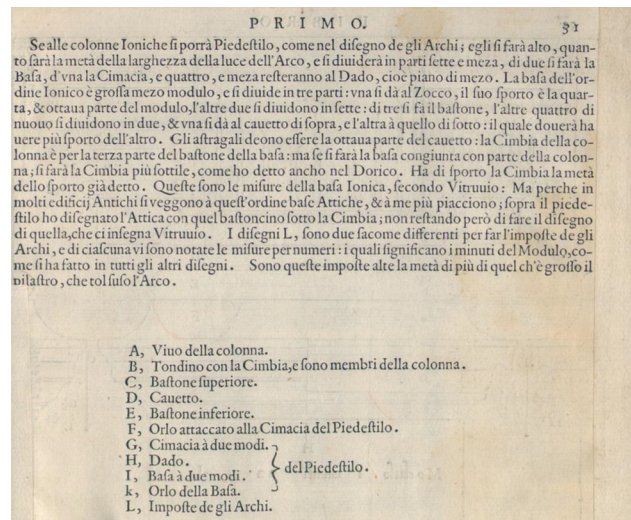 PRIMO. 31
Se alle colonne Ioniche si porrà Piedeſtilo, come nel diſegno de gli Archi; egli ſi farà alto, quan-
to ſarà la metà della larghezza della luce dell'Arco, e ſi diuiderà in parti ſette e meza, di due ſi farà la
Baſa, d'vna la Cimacia, e quattro, e meza reſteranno al Dado, cioè piano di mezo. La baſa dell'or-
dine Ionico è groſſa mezo modulo, e ſi diuide in tre parti: vna ſi dà al Zocco, il ſuo ſporto è la quar-
ta, & ottaua parte del modulo, l'altre due ſi diuidono in ſette: di tre ſi fa il baſtone, l'altre quattro di
nuouo ſi diuidono in due, & vna ſi dà al cauetto di ſopra, e l'altra à quello di ſotto: il quale douerà ha
uere più ſporto dell'altro. Gli aſtragali deono eſſere la ottaua parte del cauetto: la Cimbia della co-
lonna è per la terza parte del baſtone della baſa: ma ſe ſi farà la baſa congiunta con parte della colon-
na; ſi farà la Cimbia più ſottile, come ho detto anche nel Dorico. Ha di ſporto la Cimbia la metà
dello ſporto già detto. Queſte ſono le miſure della baſa Ionica, ſecondo Vitruuio: Ma perche in
molti edificij Antichi ſi veggono à queſt'ordine baſe Attiche, & à me più piacciono; ſopra il piede-
ſtilo ho diſegnato l'Attica con quel baſtoncino ſotto la Cimbia; non reſtando però di fare il diſegno
di quella, che ci inſegna Vitruuio. I diſegni L, ſono due ſacome differenti per far l'impoſte de gli
Archi, e di ciaſcuna vi ſono notate le miſure per numeri: i quali ſignificano i minuti del Modulo, co-
me ſi ha fatto in tutti gli altri diſegni. Sono queſte impoſte alte la metà di più di quel ch'è groſſo il
pilaſtro, che tol ſuſo l'Arco.
A, Viuo della colonna.
B, Tondino con la Cimbia, e ſono membri della colonna.
C, Baſtone ſuperiore.
D, Cauetto.
E, Baſtone inferiore.
F, Orlo attaccato alla Cimacia del Piedeſtilo.
G, Cimacia à due modi.
H, Dado.
del Piedeſtilo.
I, Baſa à due modi.
k, Orlo della Baſa.
L, Impoſte de gli Archi.